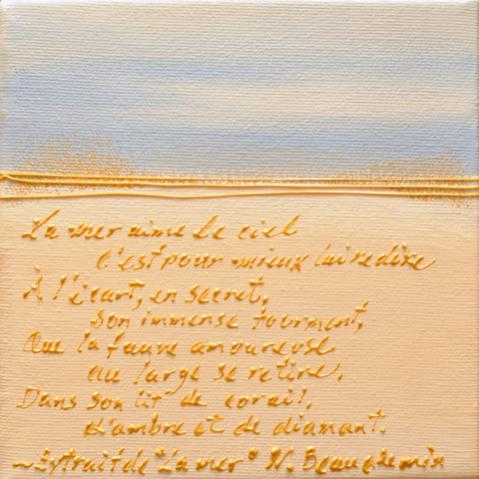 La mer aime le ciel
c'est pour mieux lui redire
À l'écart, en secret,
son immense tourment,
Que la fauve amoureuse
au large se retire,
Dans son lit de corail,
d'ambre et de diamant.
~ Extrait de "La mer" N. Beauchemin